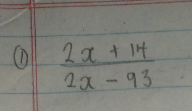 ① 2x + 14
2x - 93